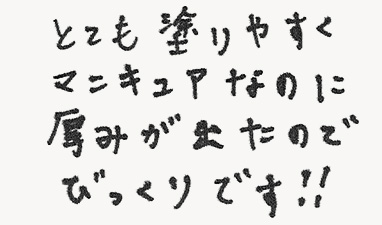 とても塗りやすく
マニキュアなのに
厚みが出たので
びっくりです!!